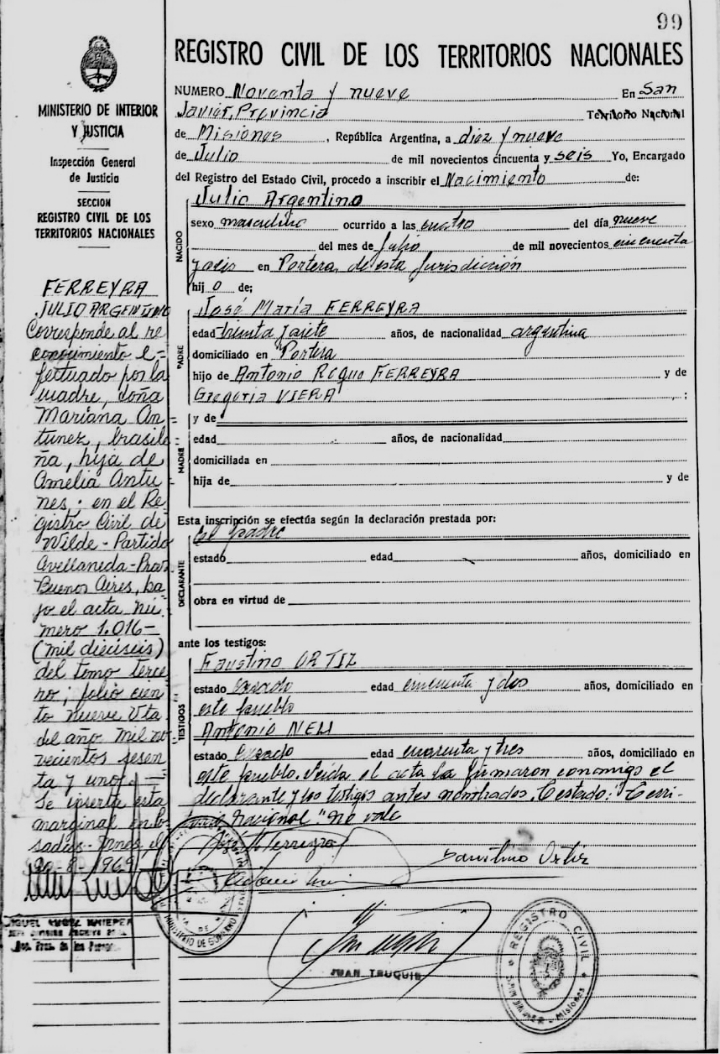 99
REGISTRO CIVIL DE LOS TERRITORIOS NACIONALES
MINISTERIO DE INTERIOR
Y JUSTICIA
Inspección General
de Justicia
SECCION
REGISTRO CIVIL DE LOS
TERRITORIOS NACIONALES
FERREYRA
JULIO ARGENTINO
Corresponde al re
conocimiento e-
fectuado por la
madre, doña
Mariana An-
tunez, brasile
ña, hija de
Amelia Antu
nes; en el Re
gistro Civil de
Wilde - Partido
Avellaneda -
Buenos Aires, ba
jo el acta nú
mero 1.016-
(mil dieciseis)
del tomo terce
ro; folio cien
to nueve vta
del año mil no
vecientos sesen
ta y uno.-
Se inserta esta
marginal en Po
sadas
1969
NUMERO Noventa y nueve En San
Javier, Provincia Territorio Nacional
de Misiones, República Argentina, a diez y nueve
de Julio de mil novecientos cincuenta y seis Yo, Encargado
del Registro del Estado Civil, procedo a inscribir el Nacimiento de:
NACIDO
Julio Argentino
sexo masculino ocurrido a las cuatro del día nueve
del mes de Julio de mil novecientos cincuenta
y seis en Portera de esta Jurisdicción
hij o de:
PADRE
José María FERREYRA
edad treinta y siete años, de nacionalidad argentina
domiciliado en Portera
hijo de Antonio Roque FERREYRA y de
Gregoria VIERA ;
MADRE
y de
edad años, de nacionalidad
domiciliada en
hija de y de
Esta inscripción se efectúa según la declaración prestada por:
DECLARANTE
El padre
estado edad años, domiciliado en
obra en virtud de
ante los testigos:
TESTIGOS
Faustino ORTIZ
estado casado edad cincuenta y dos años, domiciliado en
este pueblo
Antonio
estado casado edad cuarenta y tres años, domiciliado en
este pueblo. Leída el acta la firmaron conmigo el
declarante y los testigos antes nombrados. Testado: "Terri-
torio Nacional" no vale
José M Ferreyra
Faustino Ortiz
JUAN TRUQUIN
REGISTRO CIVIL
SAN JAVIER - Misiones
MINISTERIO DE GOBIERNO